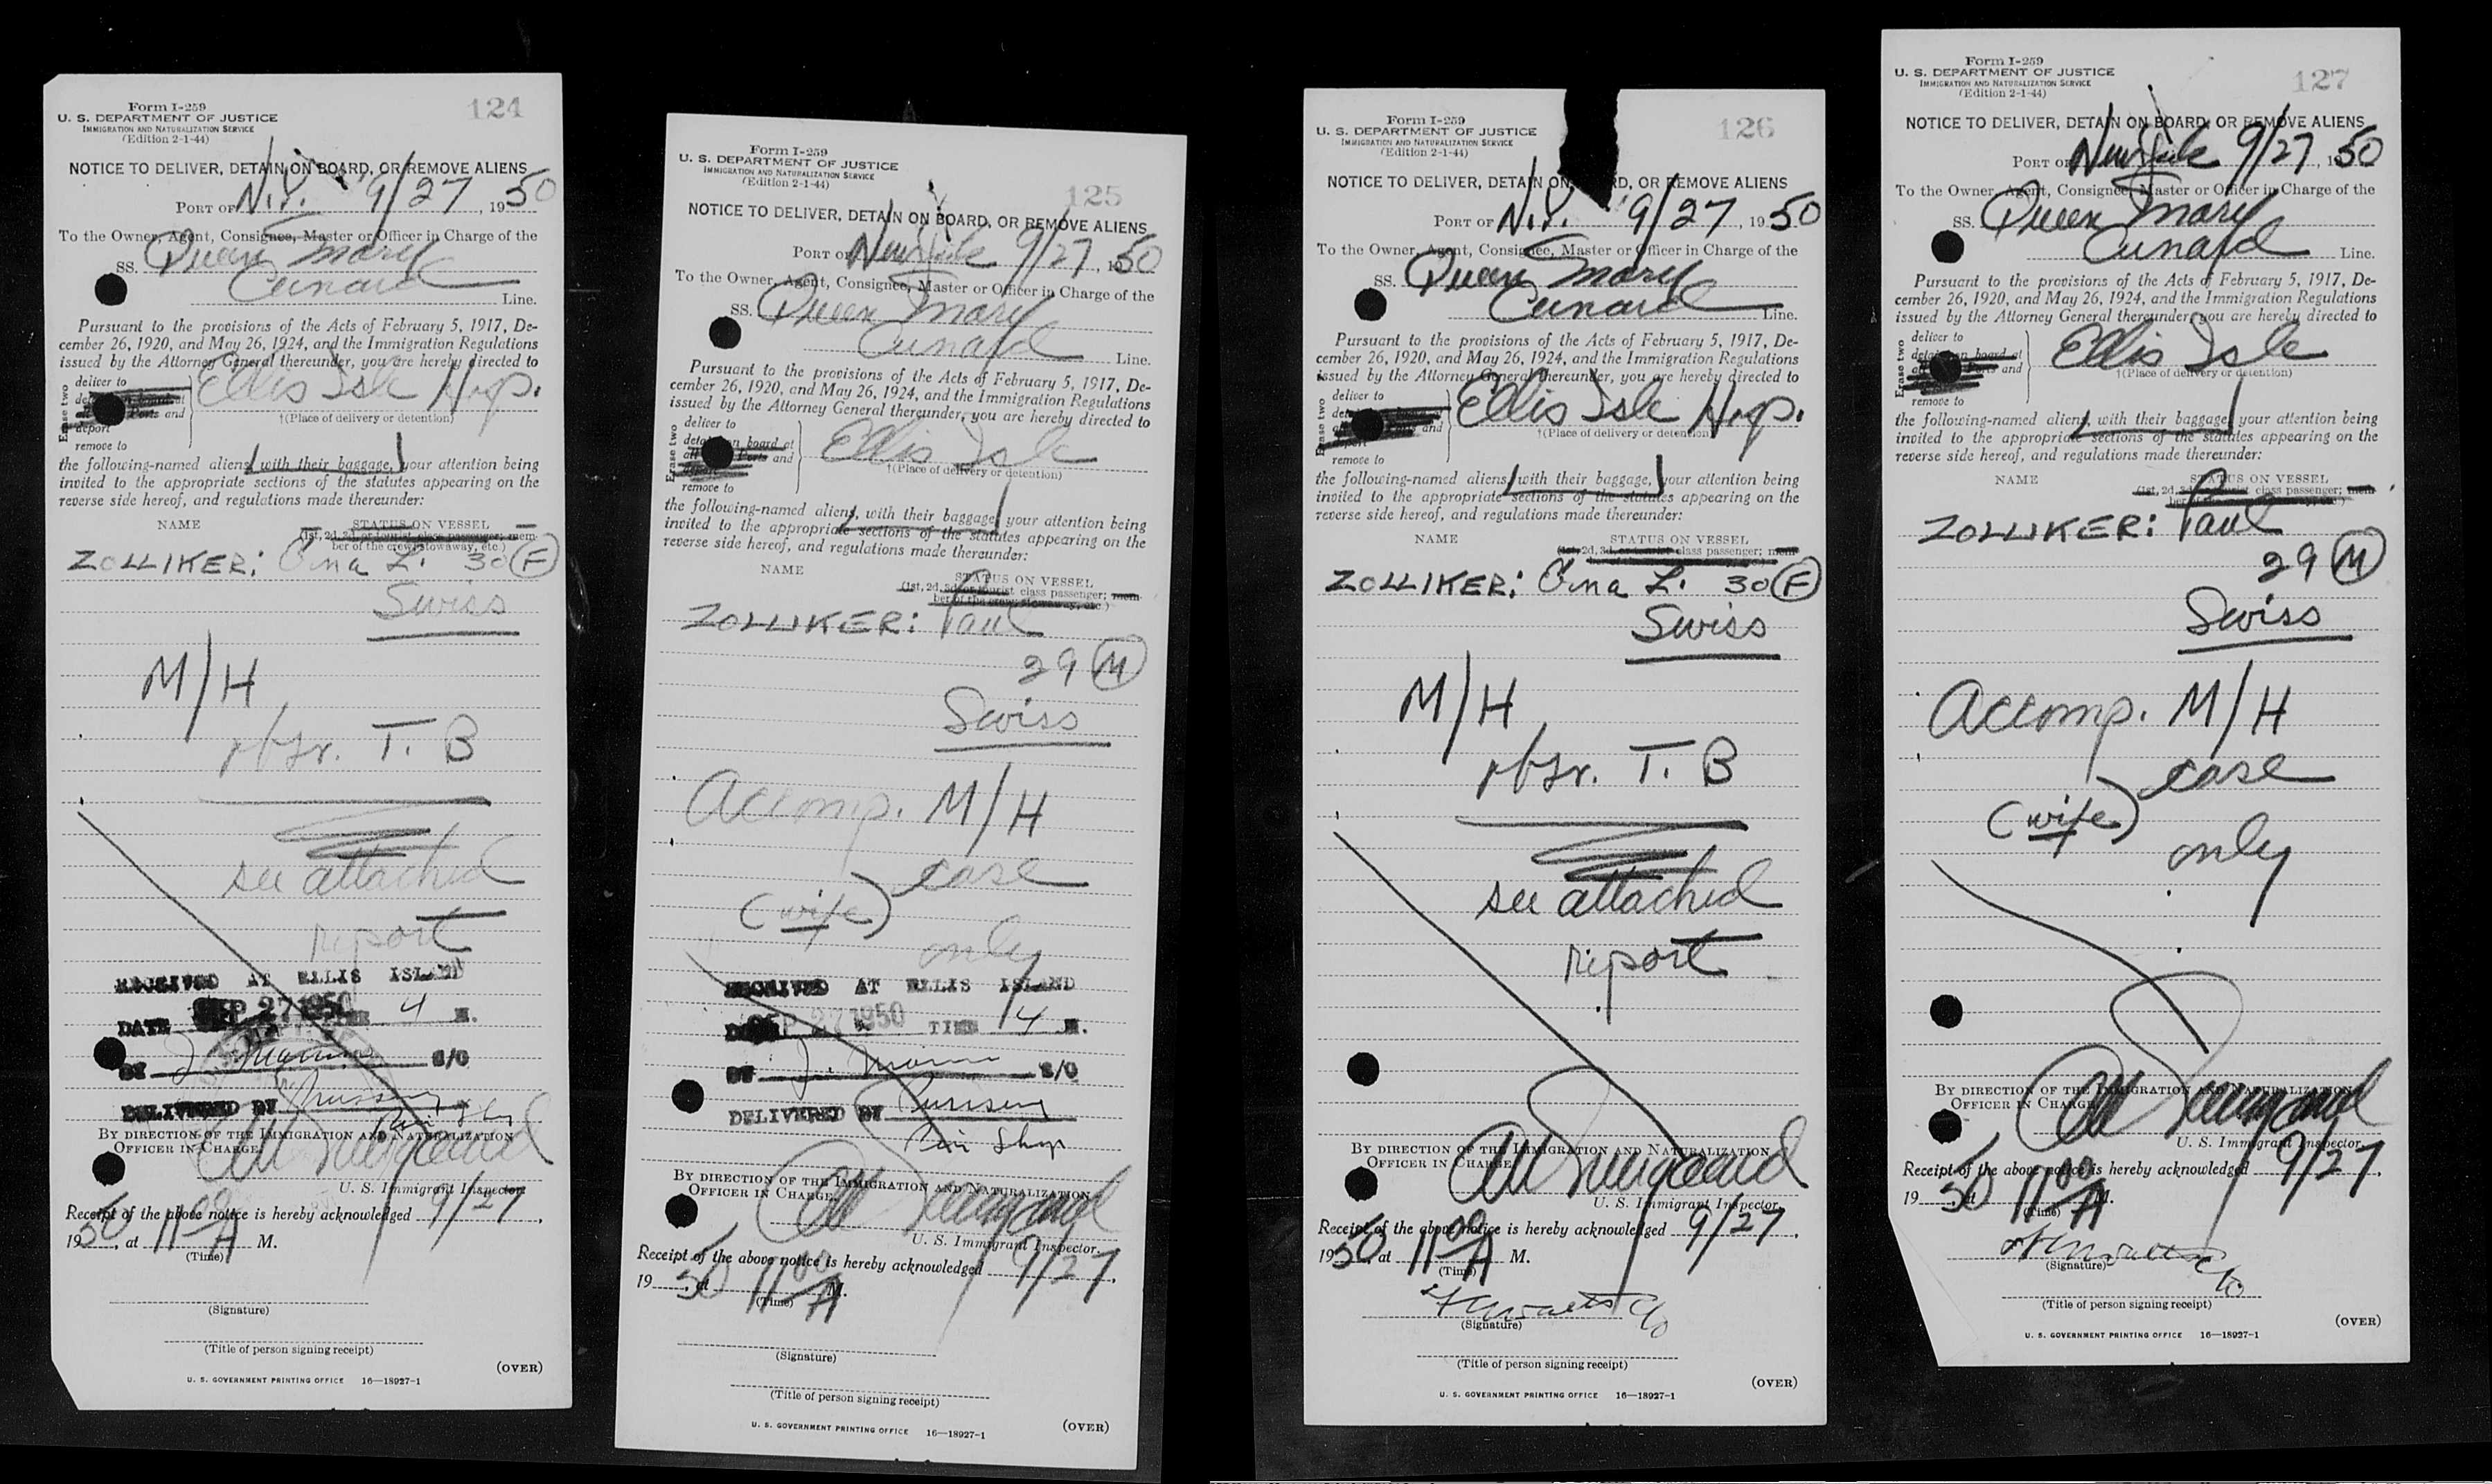 124
Form I-259
U. S. DEPARTMENT OF JUSTICE
IMMIGRATION AND NATURALIZATION SERVICE
(Edition 2-1-44)
NOTICE TO DELIVER, DETAIN ON BOARD, OR REMOVE ALIENS
PORT OF N.Y. 9/27, 1950
To the Owner, Agent, Consignee, Master or Officer in Charge of the
SS. Queen Mary
Cunard Line.
Pursuant to the provisions of the Acts of February 5, 1917, De-
cember 26, 1920, and May 26, 1924, and the Immigration Regulations
issued by the Attorney General thereunder, you are hereby directed to
Erase two
deliver to
Ports and
deport
remove to
Ellis Isle Hosp.
†(Place of delivery or detention)
the following-named aliens, with their baggage, your attention being
invited to the appropriate sections of the statutes appearing on the
reverse side hereof, and regulations made thereunder:
NAME STATUS ON VESSEL
(1st, 2d, 3d, or tourist class passenger; mem-
ber of the crew, stowaway, etc.)
ZOLLIKER: Erna L. 30 F
Swiss
M/H
obsr. T. B
see attached
report
RECEIVED AT ELLIS ISLAND
DATE SEP 27 1950 TIME 4 M.
BY J. S/O
DELIVERED BY
BY DIRECTION OF THE IMMIGRATION AND NATURALIZATION
OFFICER IN CHARGE
U. S. Immigrant Inspector
Receipt of the above notice is hereby acknowledged 9/27,
1950, at 11 00 A M.
(Time)
(Signature)
(Title of person signing receipt)
(OVER)
U. S. GOVERNMENT PRINTING OFFICE 16—18927-1
125
Form I-259
U. S. DEPARTMENT OF JUSTICE
IMMIGRATION AND NATURALIZATION SERVICE
(Edition 2-1-44)
NOTICE TO DELIVER, DETAIN ON BOARD, OR REMOVE ALIENS
PORT OF New York 9/27, 1950
To the Owner, Agent, Consignee, Master or Officer in Charge of the
SS. Queen Mary
Cunard Line.
Pursuant to the provisions of the Acts of February 5, 1917, De-
cember 26, 1920, and May 26, 1924, and the Immigration Regulations
issued by the Attorney General thereunder, you are hereby directed to
Erase two
deliver to
detain on board at
all Ports and
remove to
Ellis Isle
†(Place of delivery or detention)
the following-named aliens, with their baggage, your attention being
invited to the appropriate sections of the statutes appearing on the
reverse side hereof, and regulations made thereunder:
NAME STATUS ON VESSEL
(1st, 2d, 3d, or tourist class passenger; mem-
ber of the crew, stowaway, etc.)
ZOLLIKER: Paul
29 M
Swiss
Accomp. M/H
case
(wife)
only
RECEIVED AT ELLIS ISLAND
DATE SEP 27 1950 TIME 4 M.
BY J. S/O
DELIVERED BY
BY DIRECTION OF THE IMMIGRATION AND NATURALIZATION
OFFICER IN CHARGE.
U. S. Immigrant Inspector.
Receipt of the above notice is hereby acknowledged 9/27,
1950, at 11 00 A M.
(Time)
(Signature)
(Title of person signing receipt)
U. S. GOVERNMENT PRINTING OFFICE 16—18927-1
(OVER)
126
Form I-259
U. S. DEPARTMENT OF JUSTICE
IMMIGRATION AND NATURALIZATION SERVICE
(Edition 2-1-44)
NOTICE TO DELIVER, DETAIN ON RD, OR REMOVE ALIENS
PORT OF N.Y. 9/27, 1950
To the Owner, Agent, Consignee, Master or Officer in Charge of the
SS. Queen Mary
Cunard Line.
Pursuant to the provisions of the Acts of February 5, 1917, De-
cember 26, 1920, and May 26, 1924, and the Immigration Regulations
issued by the Attorney General thereunder, you are hereby directed to
Erase two
deliver to
and
remove to
Ellis Isle Hosp.
†(Place of delivery or detention)
the following-named aliens, with their baggage, your attention being
invited to the appropriate sections of the statutes appearing on the
reverse side hereof, and regulations made thereunder:
NAME STATUS ON VESSEL
(1st, 2d, 3d, or tourist class passenger; mem-
ZOLLIKER: Erna L. 30 F
Swiss
M/H
obsr. T. B
see attached
report
BY DIRECTION OF THE IMMIGRATION AND NATURALIZATION
OFFICER IN CHARGE
U. S. Immigrant Inspector
Receipt of the above notice is hereby acknowledged 9/27,
1950, at 11 00 A M.
(Time)
(Signature)
(Title of person signing receipt)
(OVER)
U. S. GOVERNMENT PRINTING OFFICE 16—18927-1
127
Form I-259
U. S. DEPARTMENT OF JUSTICE
IMMIGRATION AND NATURALIZATION SERVICE
(Edition 2-1-44)
NOTICE TO DELIVER, DETAIN ON BOARD, OR REMOVE ALIENS
PORT OF New York 9/27, 1950
To the Owner, Agent, Consignee, Master or Officer in Charge of the
SS. Queen Mary
Cunard Line.
Pursuant to the provisions of the Acts of February 5, 1917, De-
cember 26, 1920, and May 26, 1924, and the Immigration Regulations
issued by the Attorney General thereunder, you are hereby directed to
Erase two
deliver to
detain on board at
all Ports and
remove to
Ellis Isle
†(Place of delivery or detention)
the following-named aliens, with their baggage, your attention being
invited to the appropriate sections of the statutes appearing on the
reverse side hereof, and regulations made thereunder:
NAME
(1st, 2d, 3d, or tourist class passenger; mem-
ber of the crew, stowaway, etc.)
ZOLLIKER: Paul
29 M
Swiss
Accomp. M/H
case
(wife)
only
BY DIRECTION OF THE IMMIGRATION AND NATURALIZATION
OFFICER IN CHARGE
U. S. Immigrant Inspector
Receipt of the above notice is hereby acknowledged 9/27,
1950, at 11 00 A M.
(Time)
(Signature)
(Title of person signing receipt)
(OVER)
U. S. GOVERNMENT PRINTING OFFICE 16—18927-1